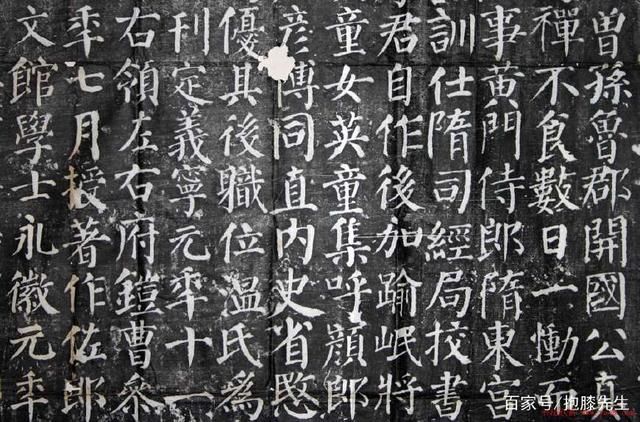 曾孫魯郡開國公真
禪不食數日一慟而
事黃門侍郎隋東宮
訓仕隋司經局挍書
君自作後加踰岷將
童女英童集呼顏郎
彦博同直內史省愍
優其後職位溫氏爲
刊定義寧元年十一
右領左右府鎧曹參
年七月授著作佐郎
文館學士永徽元年
百家号/抱膝先生